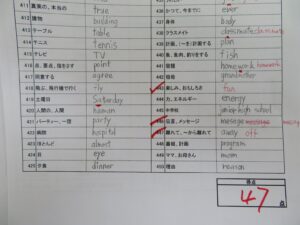 411 真実の、本当の true 436 かつて、今までに ever
412 建物 building 437 身体 body
413 テーブル table 438 クラスメイト classmate classmate
414 テニス tennis 439 計画、～を計画する plan
415 テレビ TV 440 魚、魚肉、釣りをする fish
416 点、要点、指さす point 441 宿題 homework homework
417 同意する agree 442 祖母 grandmother
418 飛ぶ、飛行機で行く fly 443 楽しみ、おもしろさ fun
419 土曜日 Saturday 444 力、エネルギー energy
420 人間の、人間 human 445 中学校 junior high school
421 パーティー、一団 party 446 伝言、メッセージ message message
422 病院 hospital 447 離れて、～から離れて away off
423 ほとんど almost 448 番組、計画 program
424 目 eye 449 ママ、お母さん mom
425 夕食 dinner 450 理由 reason
得点
47 点